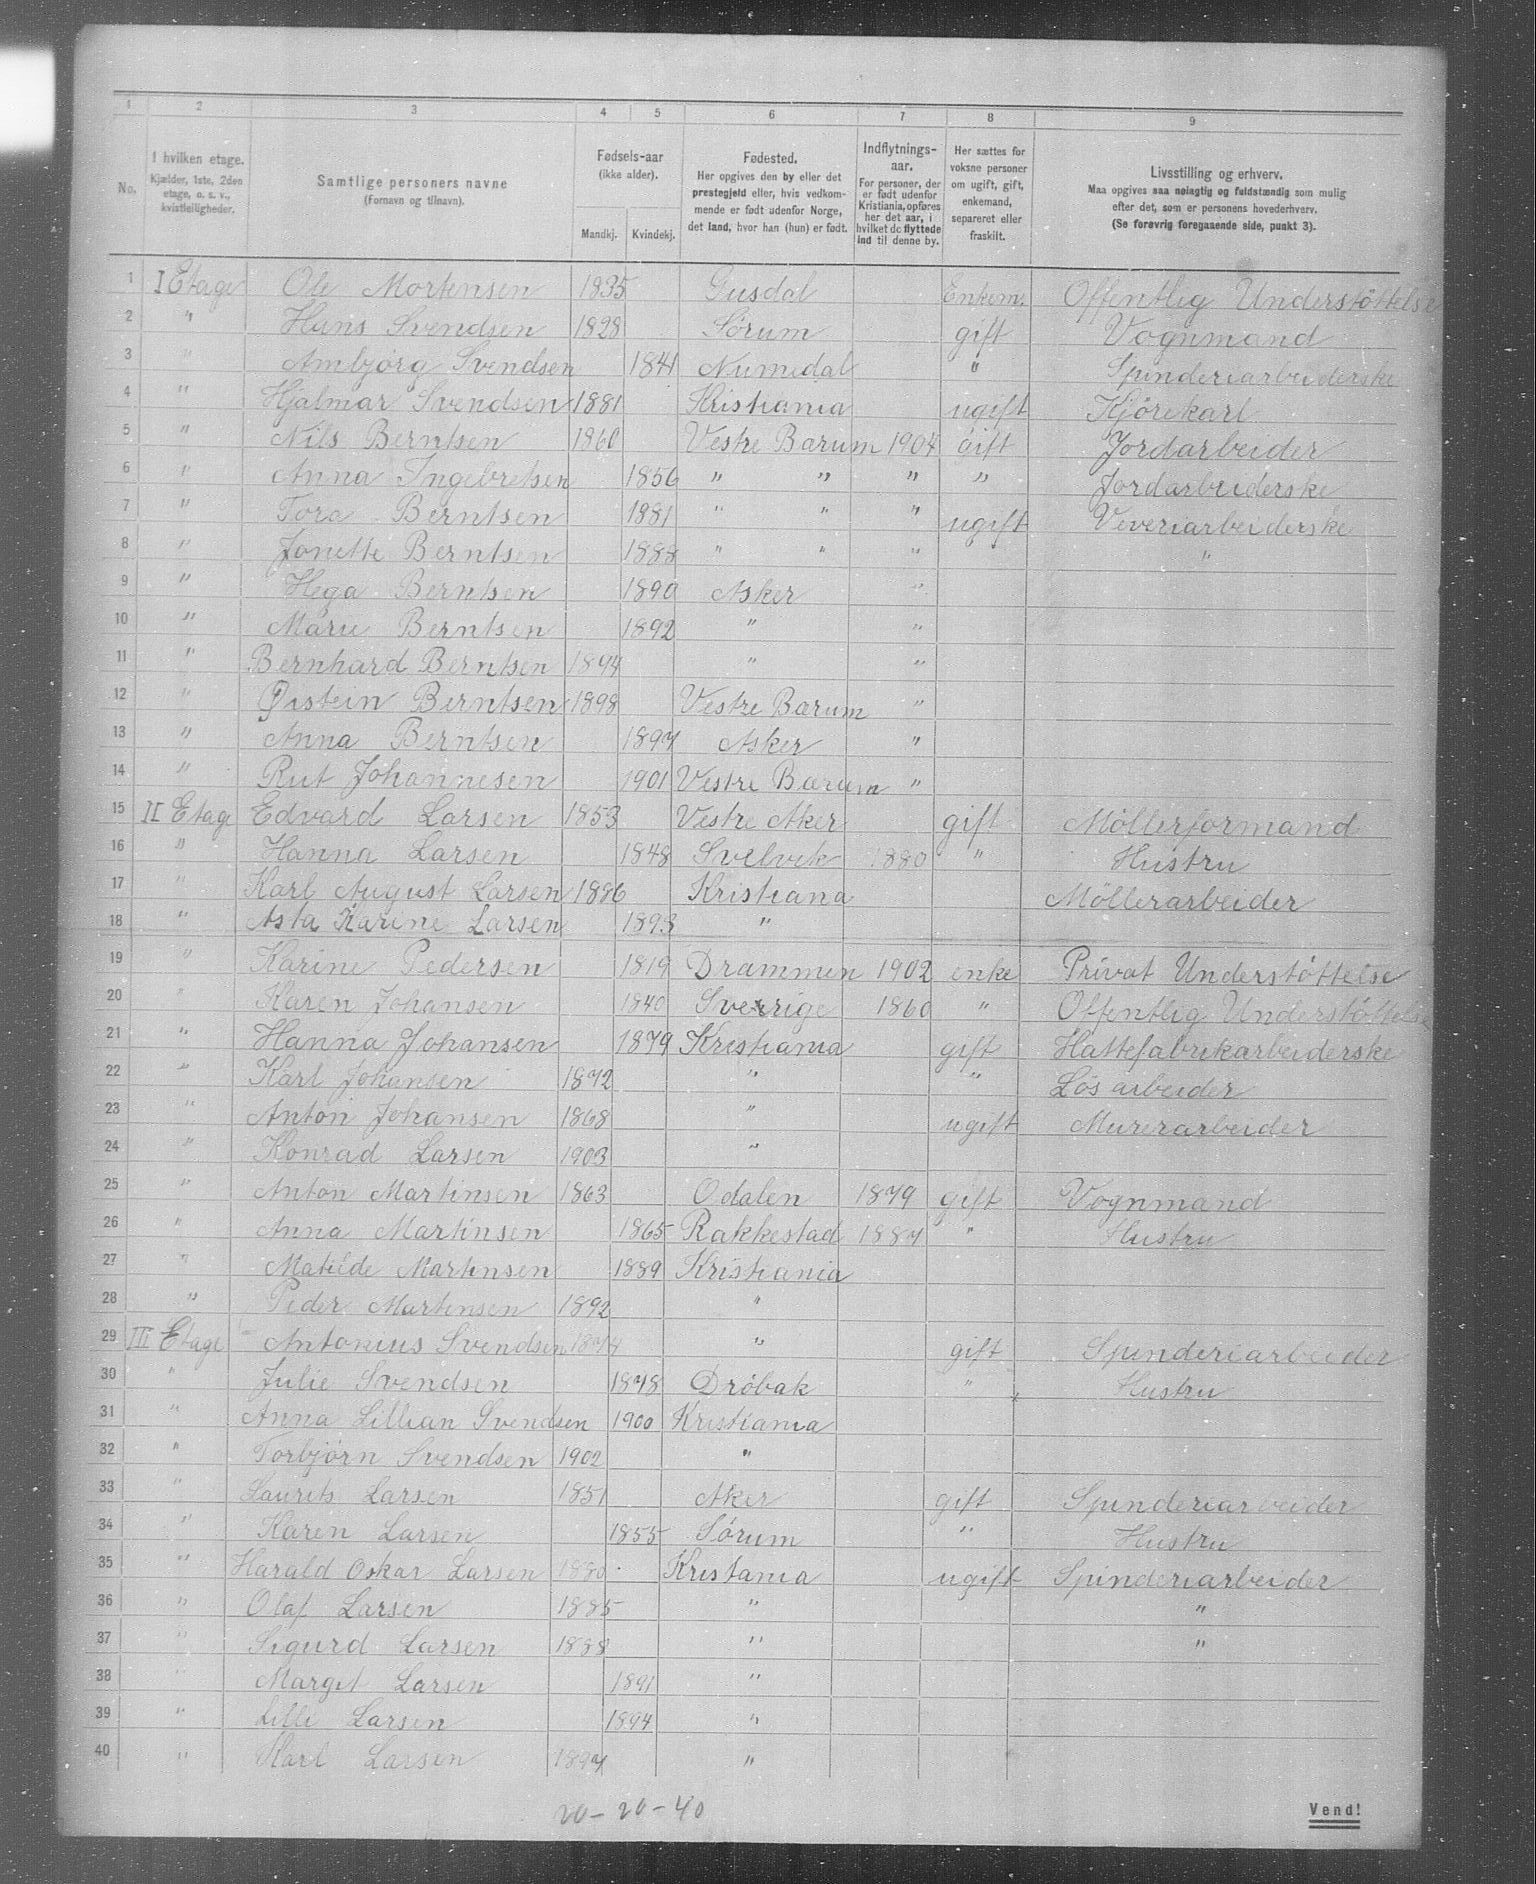 1 2 3 4 5 6 7 8 9
No.
I hvilken etage.
Kjælder, 1ste, 2den
etage, o. s. v.,
kvistleiligheder.
Samtlige personers navne
(Fornavn og tilnavn).
Fødsels-aar
(ikke alder).
Mandkj. Kvindekj.
Fødested.
Her opgives den by eller det
prestegjeld eller, hvis vedkom-
mende er født udenfor Norge,
det land, hvor han (hun) er født.
Indflytnings-
aar.
For personer, der
er født udenfor
Kristiania, opføres
her det aar, i
hvilket de flyttede
ind til denne by.
Her sættes for
voksne personer
om ugift, gift,
enkemand,
separeret eller
fraskilt.
Livsstilling og erhverv.
Maa opgives saa nøiagtig og fuldstændig som mulig
efter det, som er personens hovederhverv.
(Se forøvrig foregaaende side, punkt 3).
1 I Etage Ole Mortensen 1835 Gusdal Enkem. Offentlig Understöttelse
2 " Hans Svendsen 1828 Sørum gift Vognmand
3 " Ambjørg Svendsen 1841 Numedal " Spinderiarbeiderske
4 " Hjalmar Svendsen 1881 Kristiania ugift Kjörekarl
5 " Nils Berntsen 1860 Vestre Barum 1904 gift Jordarbeider
6 " Anna Ingebretsen 1856 " " " " Jordarbeiderske
7 " Tora Berntsen 1881 " " " ugift Veveriarbeiderske
8 " Jonette Berntsen 1888 " " " " "
9 " Hega Berntsen 1890 Asker "
10 " Marie Berntsen 1892 " "
11 " Bernhard Berntsen 1894 " "
12 " Øistein Berntsen 1898 Vestre Barum "
13 " Anna Berntsen 1897 Asker "
14 " Rut Johannesen 1901 Vestre Barum "
15 II Etage Edvard Larsen 1853 Vestre Aker gift Möllerformand
16 " Hanna Larsen 1848 Svelvik 1880 " Hustru
17 " Karl August Larsen 1886 Kristiana Möllerarbeider
18 " Asta Karine Larsen 1893 "
19 " Karine Pedersen 1819 Drammen 1902 enke Privat Understöttelse
20 " Karen Johansen 1840 Sverrige 1860 " Offentlig Understöttelse
21 " Hanna Johansen 1879 Kristiania gift Hattefabrikarbeiderske
22 " Karl Johansen 1872 " " Lös arbeider
23 " Anton Johansen 1868 " ugift Murerarbeider
24 " Konrad Larsen 1903 "
25 " Anton Martinsen 1863 Odalen 1879 gift Vognmand
26 " Anna Martinsen 1865 Rakkestad 1887 " Hustru
27 " Matilde Martinsen 1889 Kristiania
28 " Peder Martinsen 1892 "
29 III Etage Antonius Svendsen 1874 " gift Spinderiarbeider
30 " Julie Svendsen 1878 Dröbak " Hustru
31 " Anna Lillian Svendsen 1900 Kristiania
32 " Torbjørn Svendsen 1902 "
33 " Laurits Larsen 1851 Aker gift Spinderiarbeider
34 " Karen Larsen 1855 Sørum " Hustru
35 " Harald Oskar Larsen 1880 Kristania ugift Spinderiarbeider
36 " Olaf Larsen 1885 " "
37 " Sigurd Larsen 1888 " "
38 " Margit Larsen 1891 "
39 " Lilli Larsen 1894 "
40 " Karl Larsen 1897 "
20 - 20 - 40
Vend!